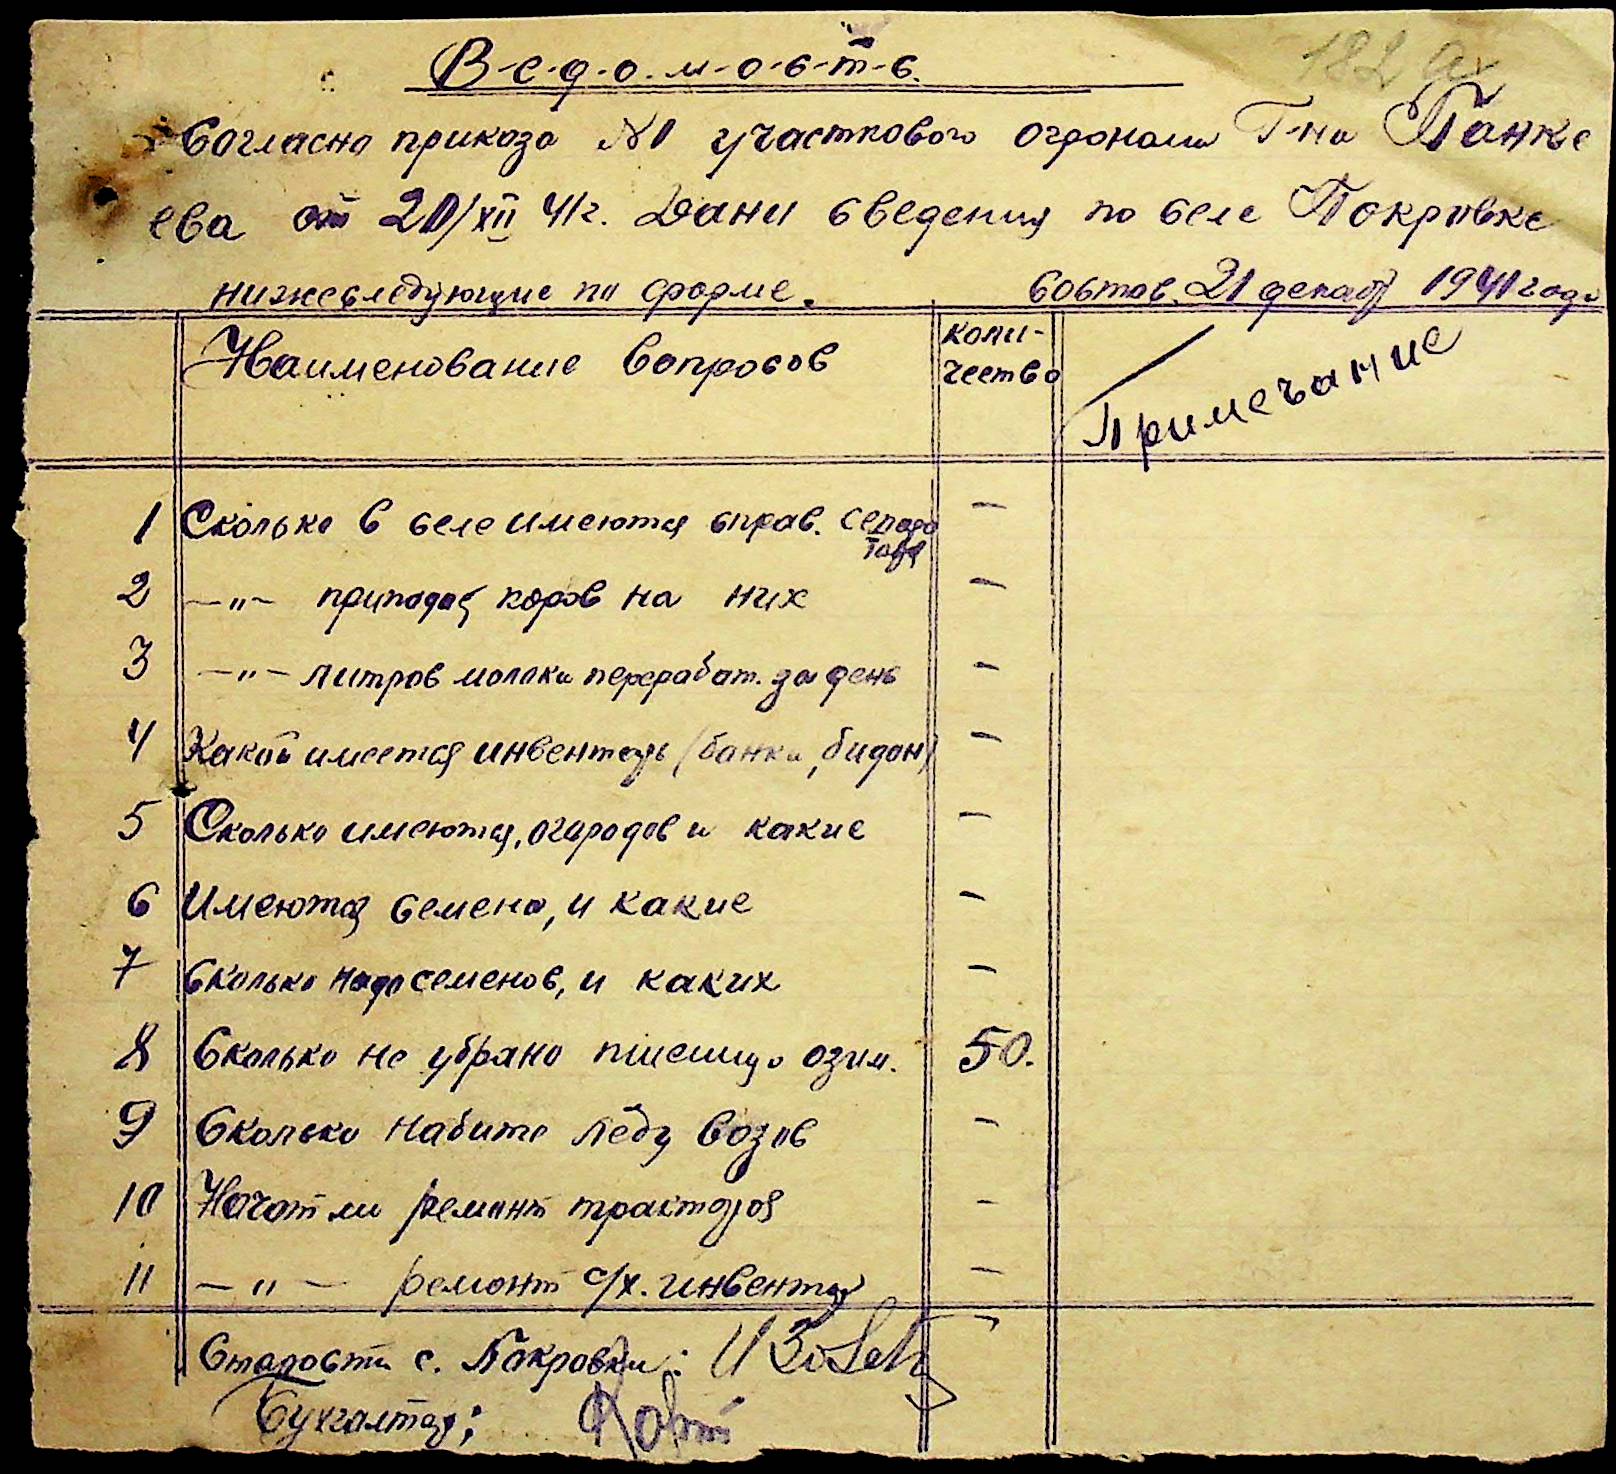 В-е-д-о-м-о-с-т-ь.
182 а
Согласно приказа №1 участкового агронома Г-на Панке
ева от 20/XII 41г. Дани сведения по селе Покровке
нижеследующие по форме. Состав. 21 декабр 1941 года
Наименование вопросов
коли-
чество
Примечание
1 Сколько в селе имеются справ. сепара
тора –
2 –"– припадает коров на них –
3 –"– литров молока переработ. за день –
4 Какой имеется инвентарь (банки, бидон) –
5 Сколько имеются, огородов и какие –
6 Имеются семена, и какие –
7 Сколько надо семенов, и каких –
8 Сколько не убрано пшеницо озим. 50.
9 Сколько набито лёду возов –
10 Начат ли ремонт тракторов –
11 –"– ремонт с/х. инвентар –
Староста с. Покровки:
Бухгалтер: